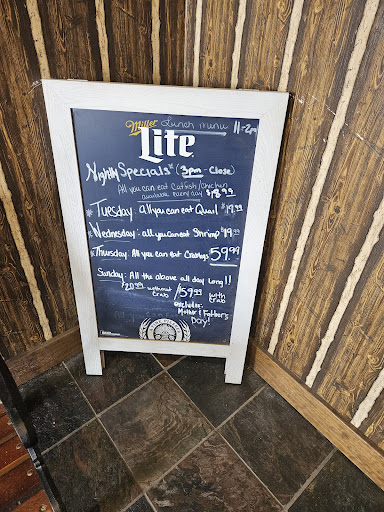 Miller Lunch menu 11-2pm
Lite
Nightly Specials* (3pm - Close)
All you can eat Catfish/Chicken
available everyday $18.99
* Tuesday: all you can eat Quail $19.99
* Wednesday: all you can eat Shrimp $19.99
* Thursday: All you can eat Crablegs 59.99
Sunday: All the above all day long!!
$20.99 without Crab / $59.99 with Crab
excludes:
Mother & Father's
Day!